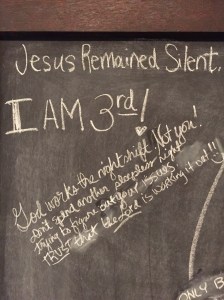 Jesus Remained Silent.
I AM 3rd!
God works the nightshift Not you!
Don't spend another sleepless night
trying to figure out your issues
TRUST that the Lord is working it out!!!
ONLY B